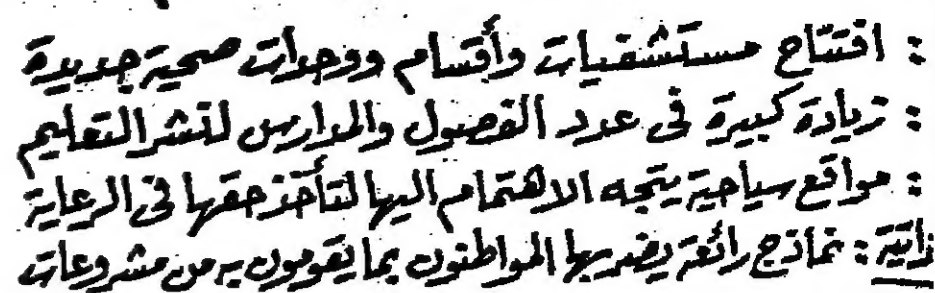 : افتتاح مستشفيات وأقسام ووحدات صحية جديدة
: زيادة كبيرة فى عدد الفصول والمدارس لنشر التعليم
: مواقع سياحية يتجه الاهتمام اليها لتأخذ حقها فى الرعاية
ذاتية : نماذج رائعة يضربها المواطنون بما يقومون به من مشروعات